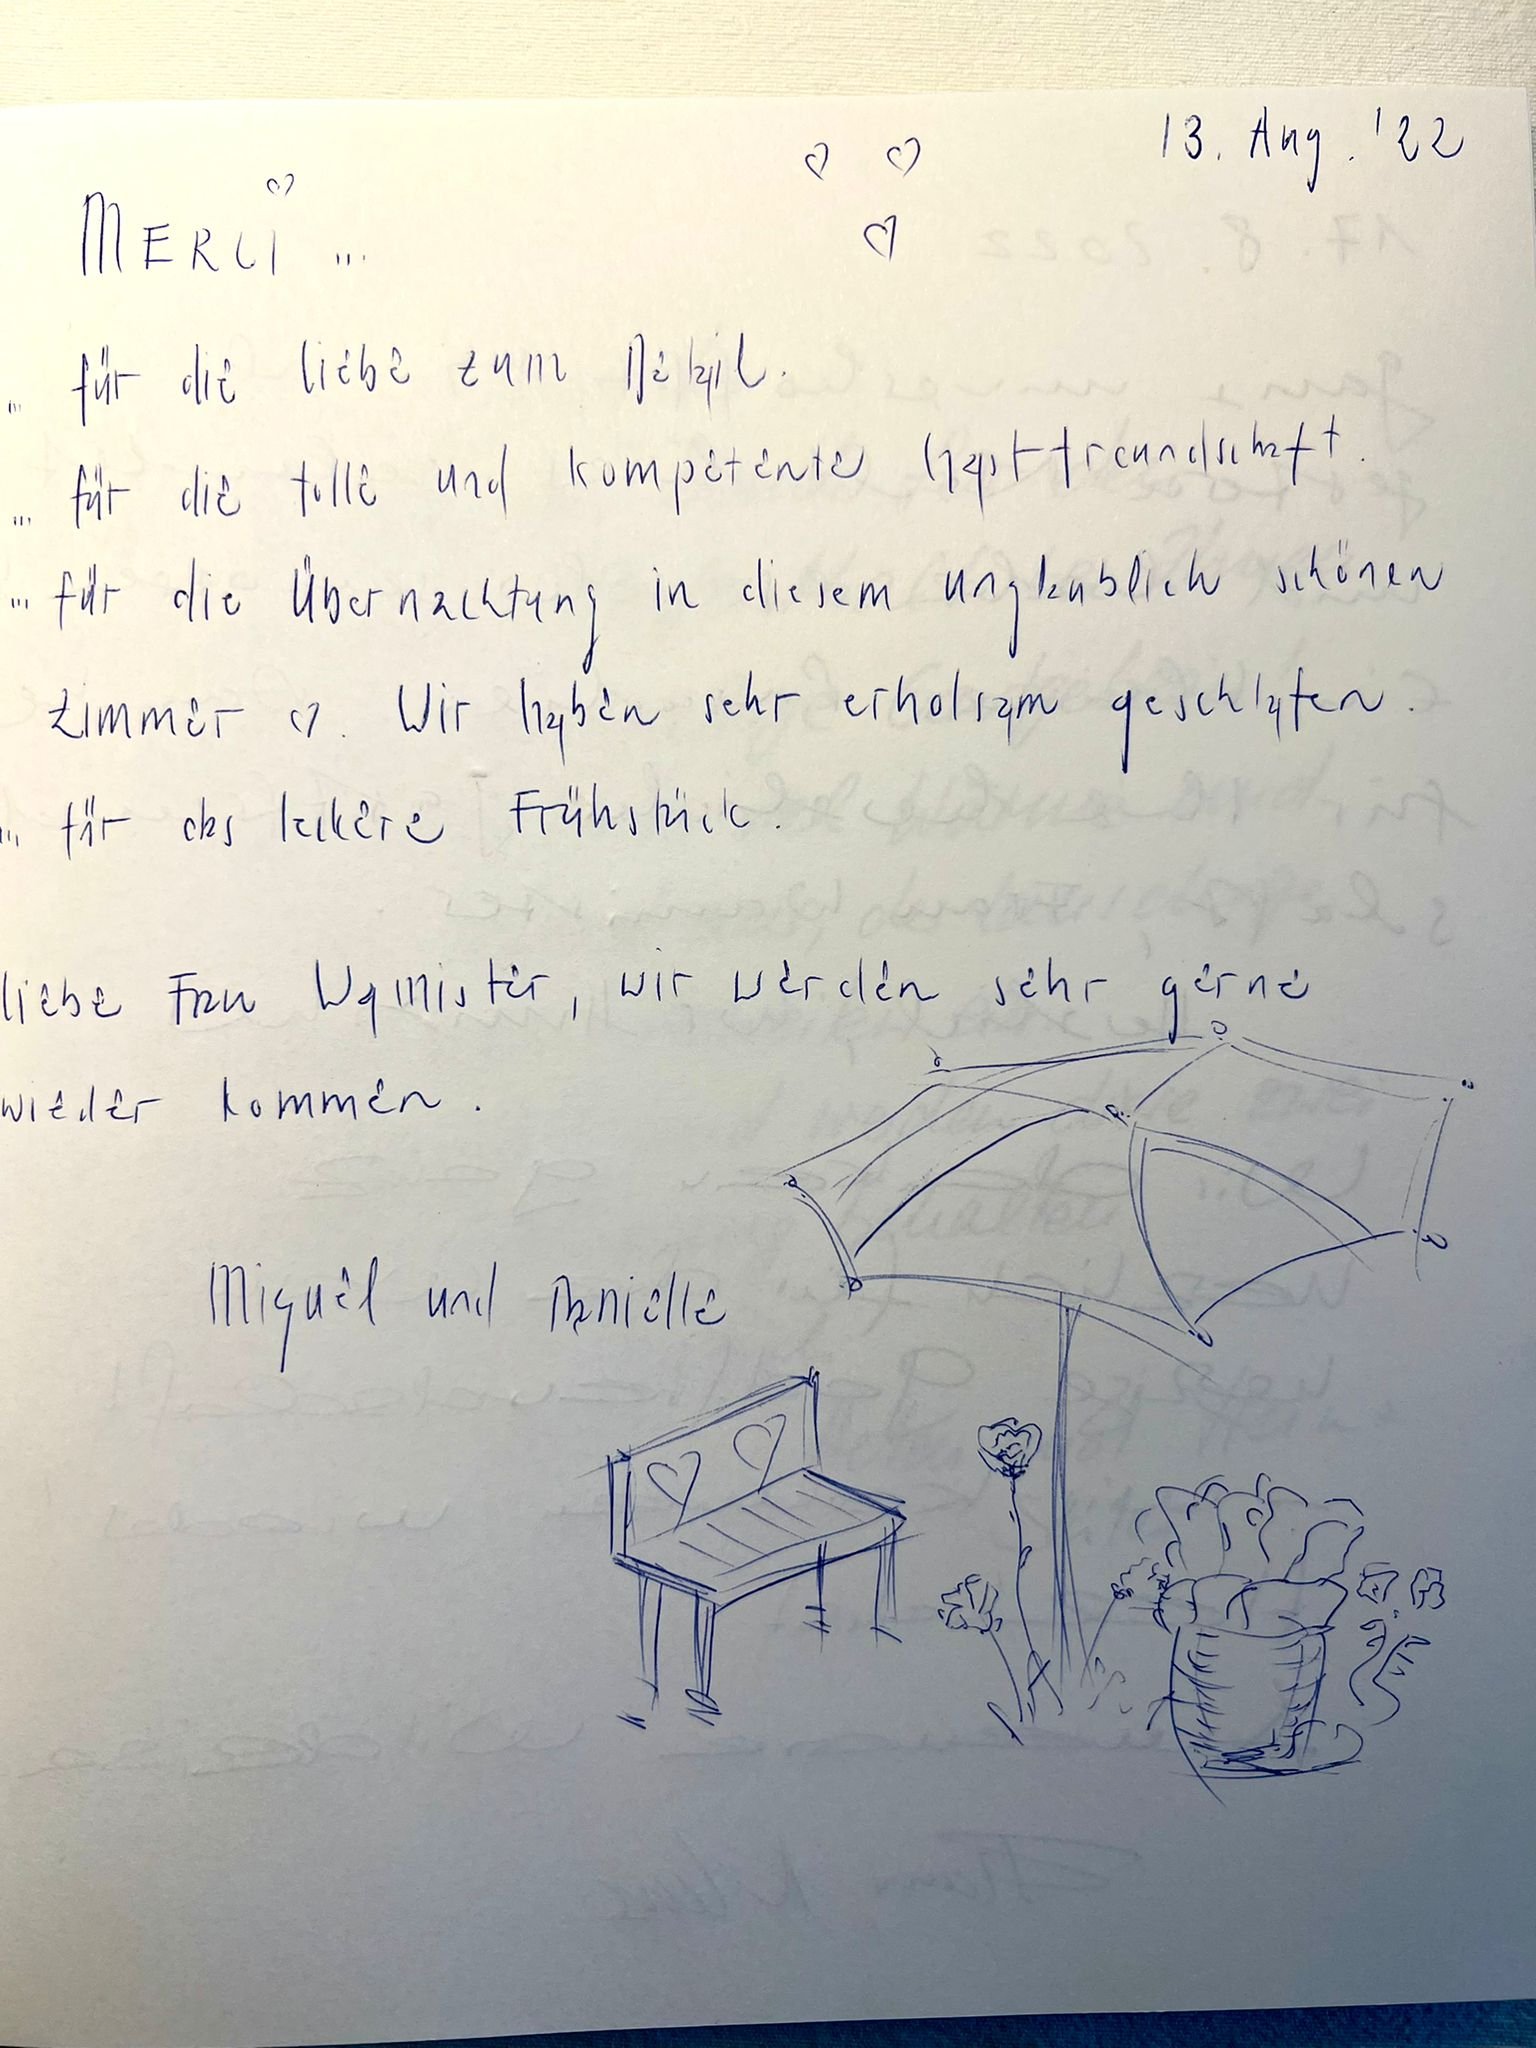 13. Aug. '22
MERCI ...
... für die liebe zum Detail.
... für die tolle und kompetente Gastfreundschaft.
... für die Übernachtung in diesem unglaublich schönen
Zimmer ♡. Wir haben sehr erholsam geschlafen.
... für das leckere Frühstück.
liebe Frau Wymister, wir werden sehr gerne
wieder kommen.
Miguel und Danielle